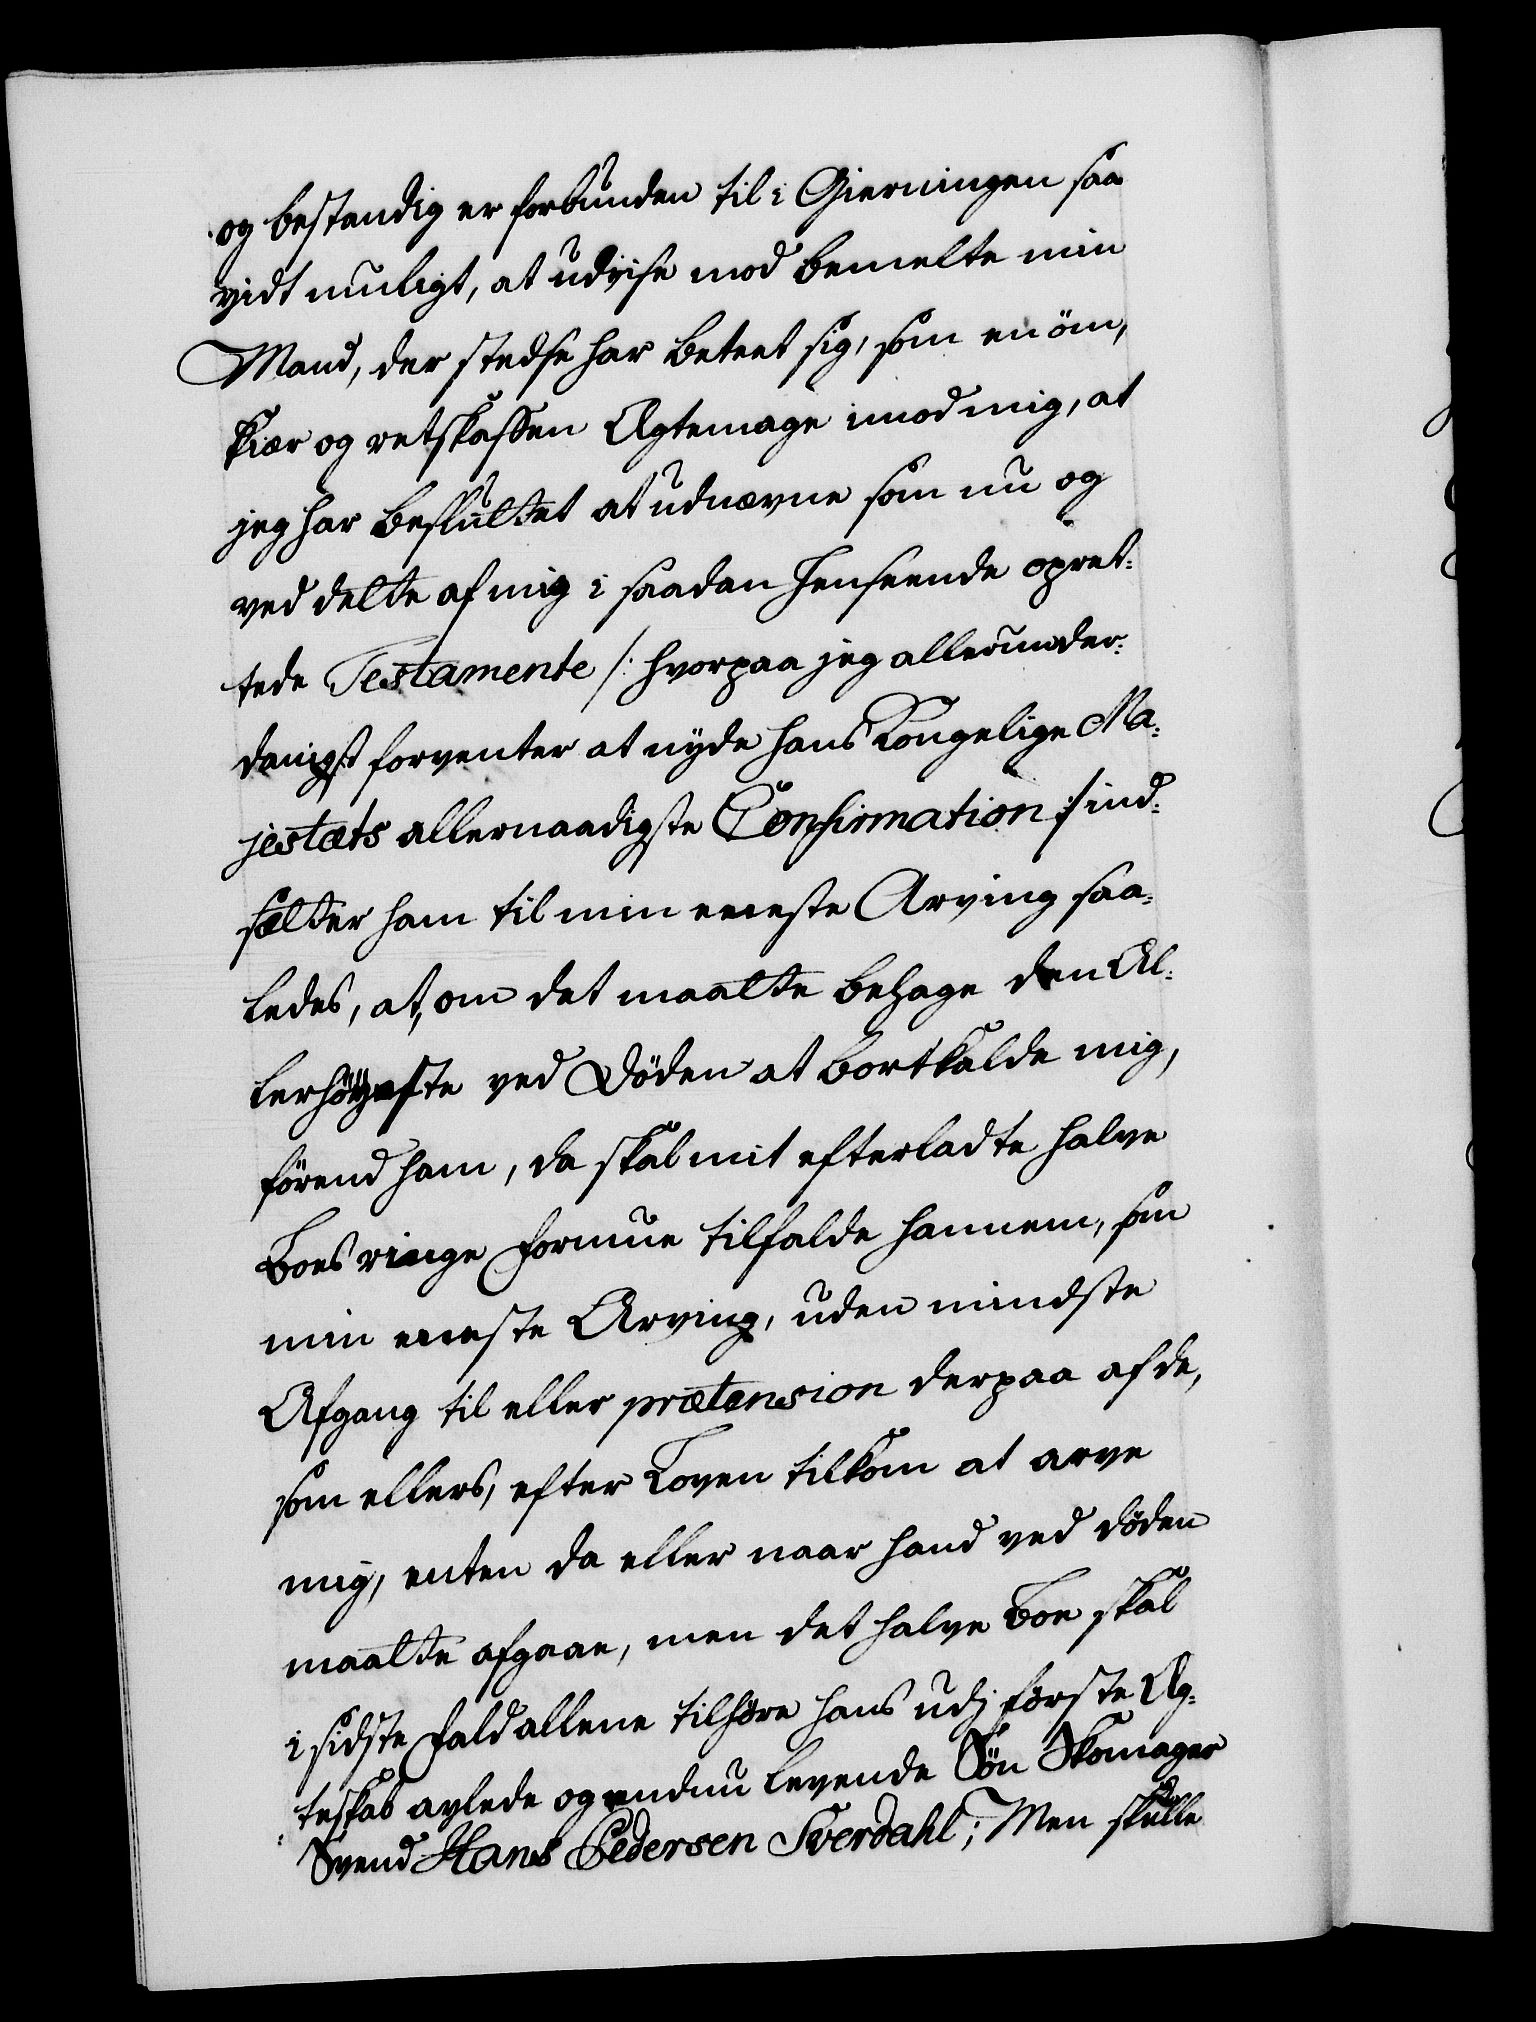 og bestandig er forbunden til i Gierningen saa
vidt mueligt, at udvise mod bemelte min
Mand, der stedse har beteet sig, som en öm,
kiær og retskaffen Ægtemage imod mig, at
jeg har besluttet at udnævne som nu og
ved dette af mig i saadan Henseende opret-
tede Testamente /: hvorpaa jeg allerunder-
danigst forventer at nyde Hans Kongelige Ma-
jestæts allernaadigste Confirmation :/ ind-
sætter ham til min eeneste Arving saa-
ledes, at, om det maatte behage den Al-
lerhöyeste ved Döden at bortkalde mig,
förend ham, da skal mit efterladte halve
Boes ringe Formue tilfalde hannem, som
min eeneste Arving, uden mindste
Afgang til eller prætension derpaa af de,
som ellers, efter Loven tilkom at arve
mig, enten da eller naar hand ved döden
maatte afgaae, men det halve Boe skal
i sidste Fald alleene tilhöre hans udj förste Æg-
teskab avlede og endnu levende Sön Skomager
Svend Hans Pedersen Sverdahl; Men skulle